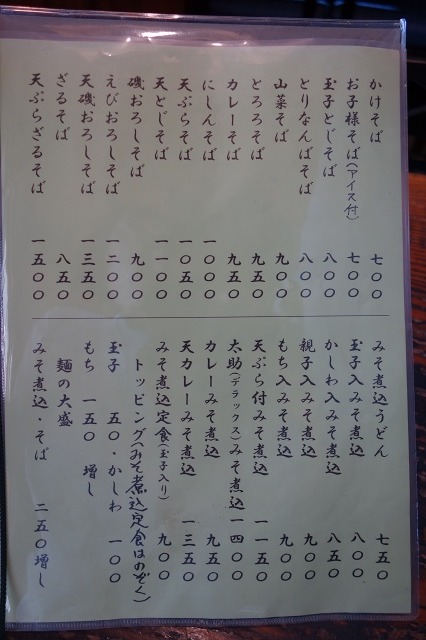 かけそば 七〇〇
お子様そば(アイス付) 七〇〇
玉子とじそば 八〇〇
とりなんばそば 八〇〇
山菜そば 九〇〇
とろろそば 九五〇
カレーそば 九五〇
にしんそば 一〇〇〇
天ぷらそば 一〇五〇
天とじそば 一一〇〇
磯おろしそば 九〇〇
えびおろしそば 一二〇〇
天磯おろしそば 一三五〇
ざるそば 八五〇
天ぷらざるそば 一五〇〇
みそ煮込うどん 七五〇
玉子入みそ煮込 八〇〇
かしわ入みそ煮込 八五〇
親子入みそ煮込 九〇〇
もち入みそ煮込 九〇〇
天ぷら付みそ煮込 一一五〇
太助(デラックス)みそ煮込 一四〇〇
カレーみそ煮込 九五〇
天カレーみそ煮込 一三五〇
みそ煮込定食(玉子入り) 九〇〇
トッピング(みそ煮込定食はのぞく)
玉子 五〇・かしわ 一〇〇
もち 一五〇 増し
麺の大盛
みそ煮込・そば 二五〇増し